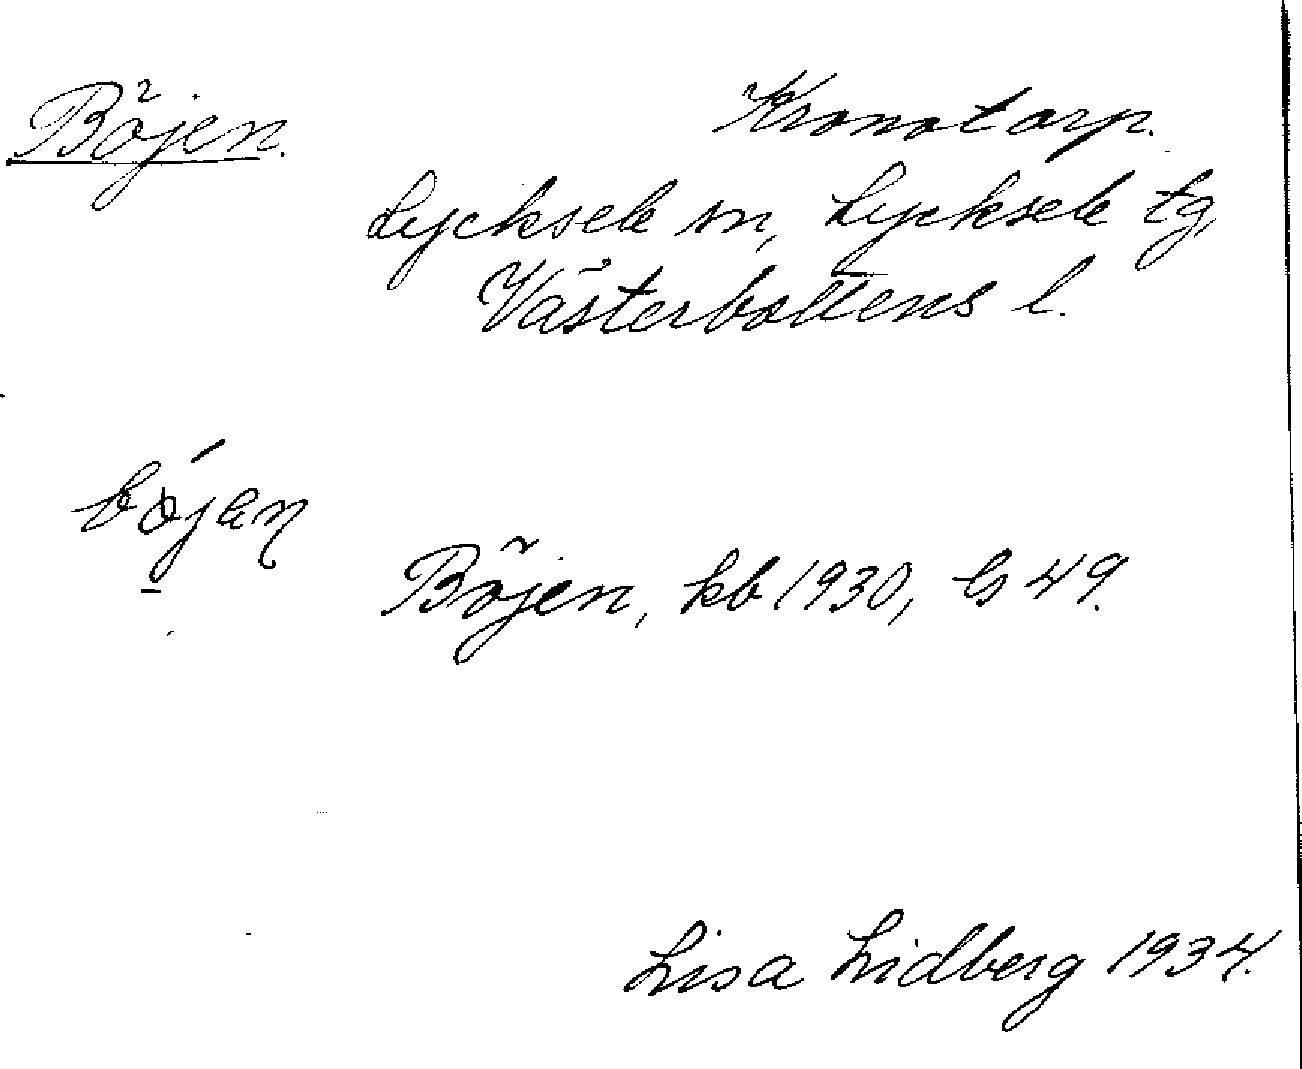 Böjen. Kronotorp.
Lycksele sn, Lycksele tg,
Västerbottens l.
Böjen, kb 1930, G 49.
Lisa Lidberg 1934.